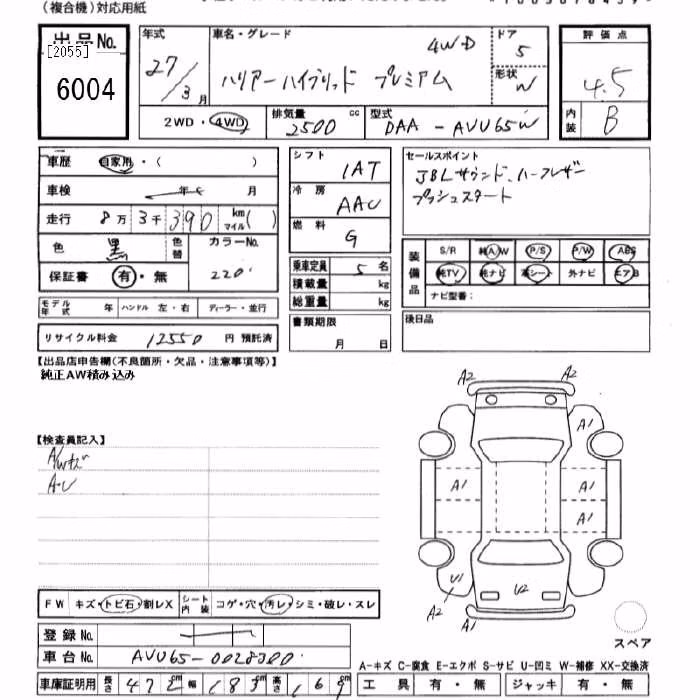 (複合機)対応用紙
出品No.
[2055]
6004
年式
27/3月
車名・グレード
4WD
ハリアーハイブリッド プレミアム
ドア
5
形状
W
評価点
4.5
内装
B
2WD・4WD
排気量
2500
cc
型式
DAA-AVU65W
車歴
自家用・( )
車検
年 月
走行
8万3千390
km
マイル( )
色
黒
色替
カラーNo.
220
保証書
有・無
モデル年式
年
ハンドル 左・右
ディーラー・並行
リサイクル料金
12550
円 預託済
シフト
IAT
冷房
AAC
燃料
G
乗車定員
5名
積載量
kg
総重量
kg
書類期限
月 日
セールスポイント
JBLサウンド、ハーフレザー
プッシュスタート
装備品
S/R 純A/W P/S P/W ABS
純TV 純ナビ 革シート 外ナビ エアB
ナビ型番:
後日品
【出品店申告欄(不良箇所・欠品・注意事項等)】
純正AW積み込み
【検査員記入】
A/Wキズ
A-U
A2 A2
A1
A1 A1
A1
U1 U2
A2 A1
FW
キズ・トビ石・割レX
シート内装
コゲ・穴・汚レ・シミ・破レ・スレ
登録No.
車台No.
AVU65-0028300
スペア
A-キズ C-腐食 E-エクボ S-サビ U-凹ミ W-補修 XX-交換済
車庫証明用
長さ
472
幅
183
高さ
169
工具 有・無
ジャッキ 有・無